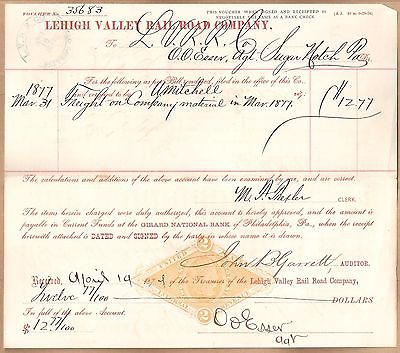 VOUCHER No. 35683
THIS VOUCHER WHEN SIGNED AND RECEIPTED IS
NEGOTIABLE THE SAME AS A BANK CHECK.
LEHIGH VALLEY RAIL ROAD COMPANY,
To L. V. R. R. Co
O. O. Esser, Agt. Sugar Notch Pa Dr.
For the following as per Bill rendered, filed in the office of this Co.
and vouched to by A Mitchell viz:
1877
Mar. 31 Freight on Company material in Mar. 1877. $12.77
The calculations and additions of the above account have been examined by me, and are correct.
CLERK.
The items herein charged were duly authorized, this account is hereby approved, and the amount is
payable in Current Funds at the GIRARD NATIONAL BANK of Philadelphia, Pa., when the receipt
herewith attached is DATED and SIGNED by the party in whose name it is drawn.
John B. Garrett, AUDITOR.
Received, April 19 187 of the Treasurer of the LEHIGH VALLEY RAIL ROAD COMPANY,
Twelve 77/100 DOLLARS
In full of the above Account.
$ 12 77/100
O O Esser
agt
2
2